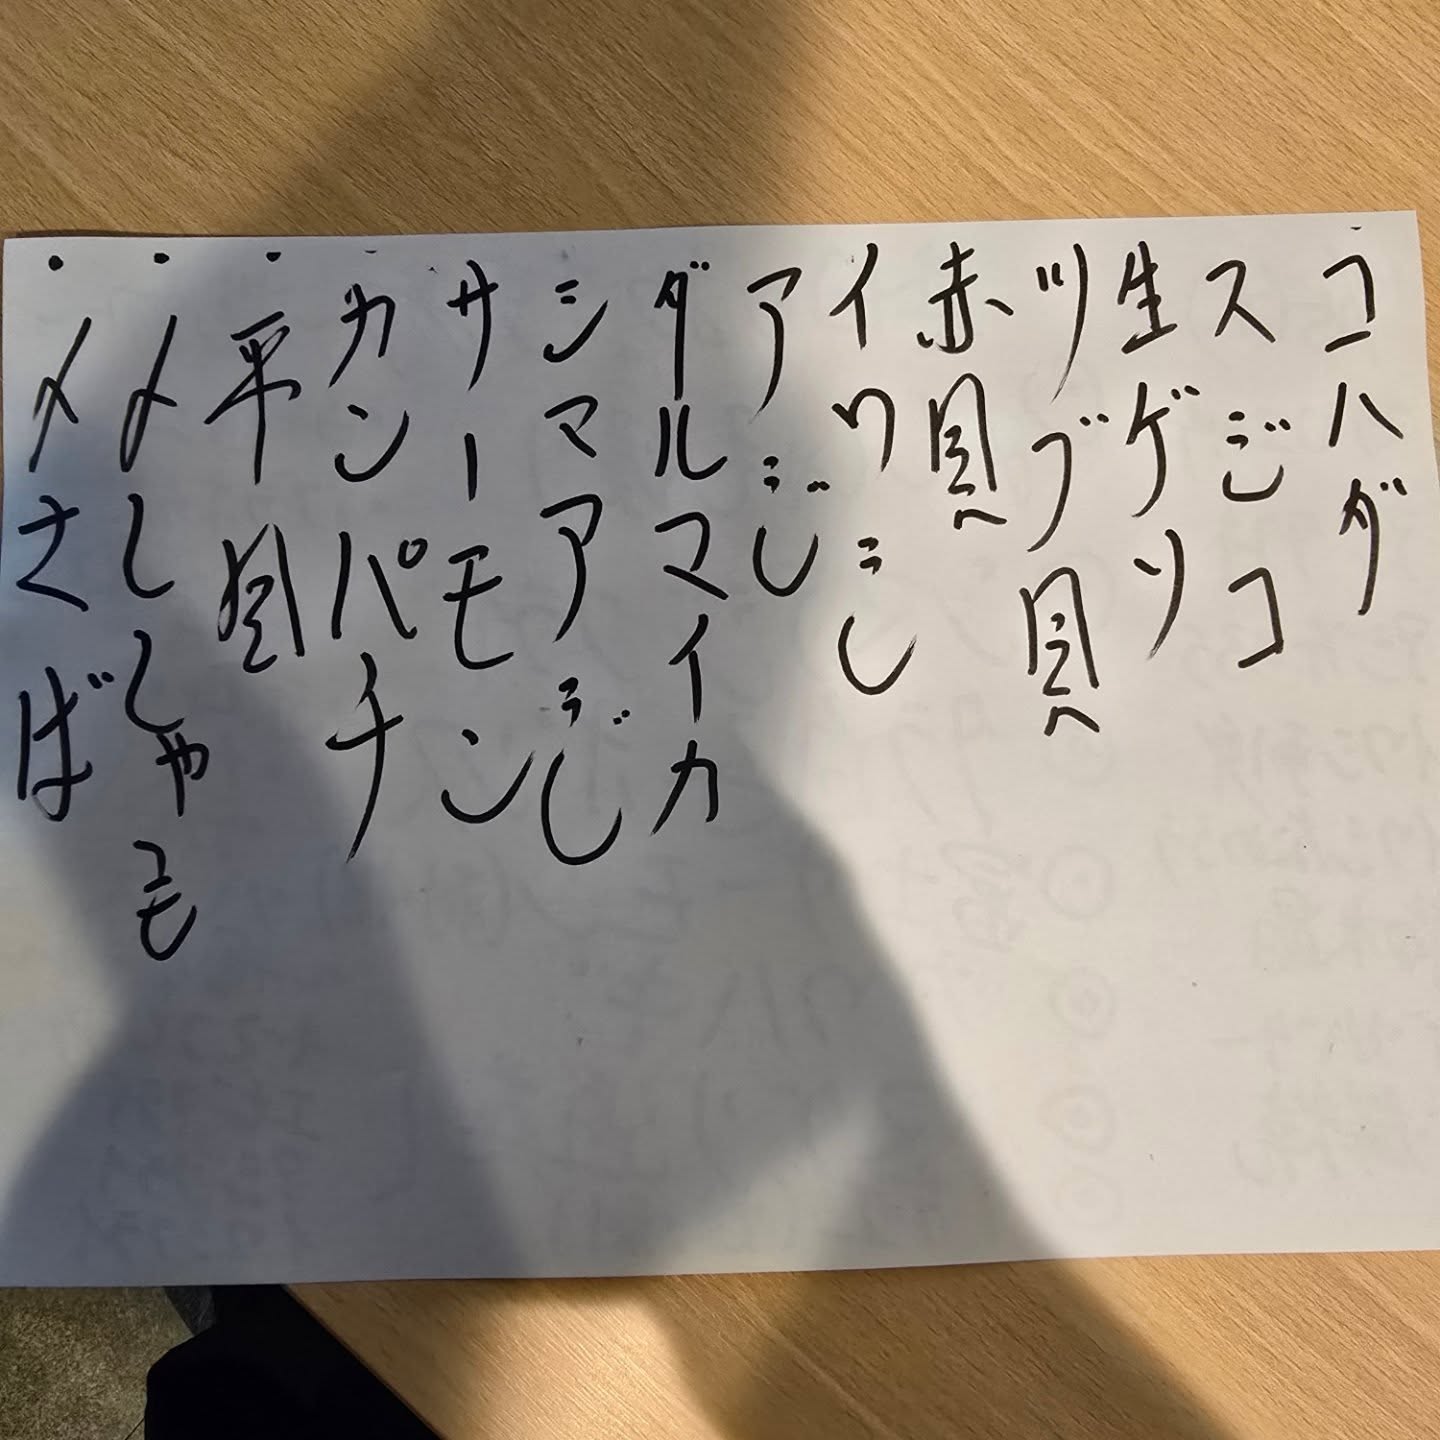 コハダ
スジコ
生ゲソ
ツブ貝
赤貝
イワシ
アジ
ダルマイカ
シマアジ
サーモン
カンパチ
平貝
〆ししゃも
〆さば